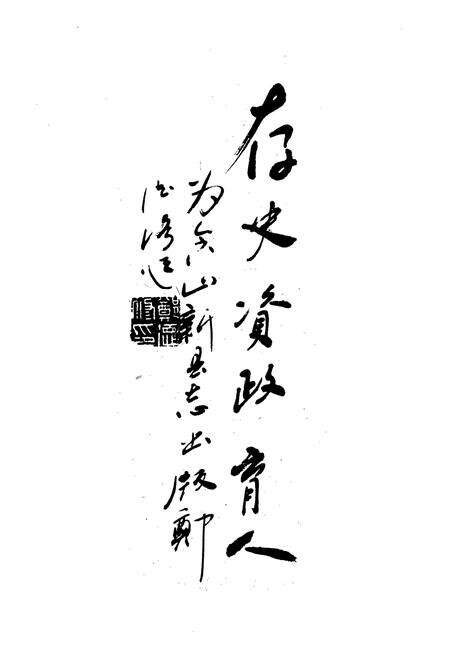 存史資政育人
为含山新县志出版鄭
题